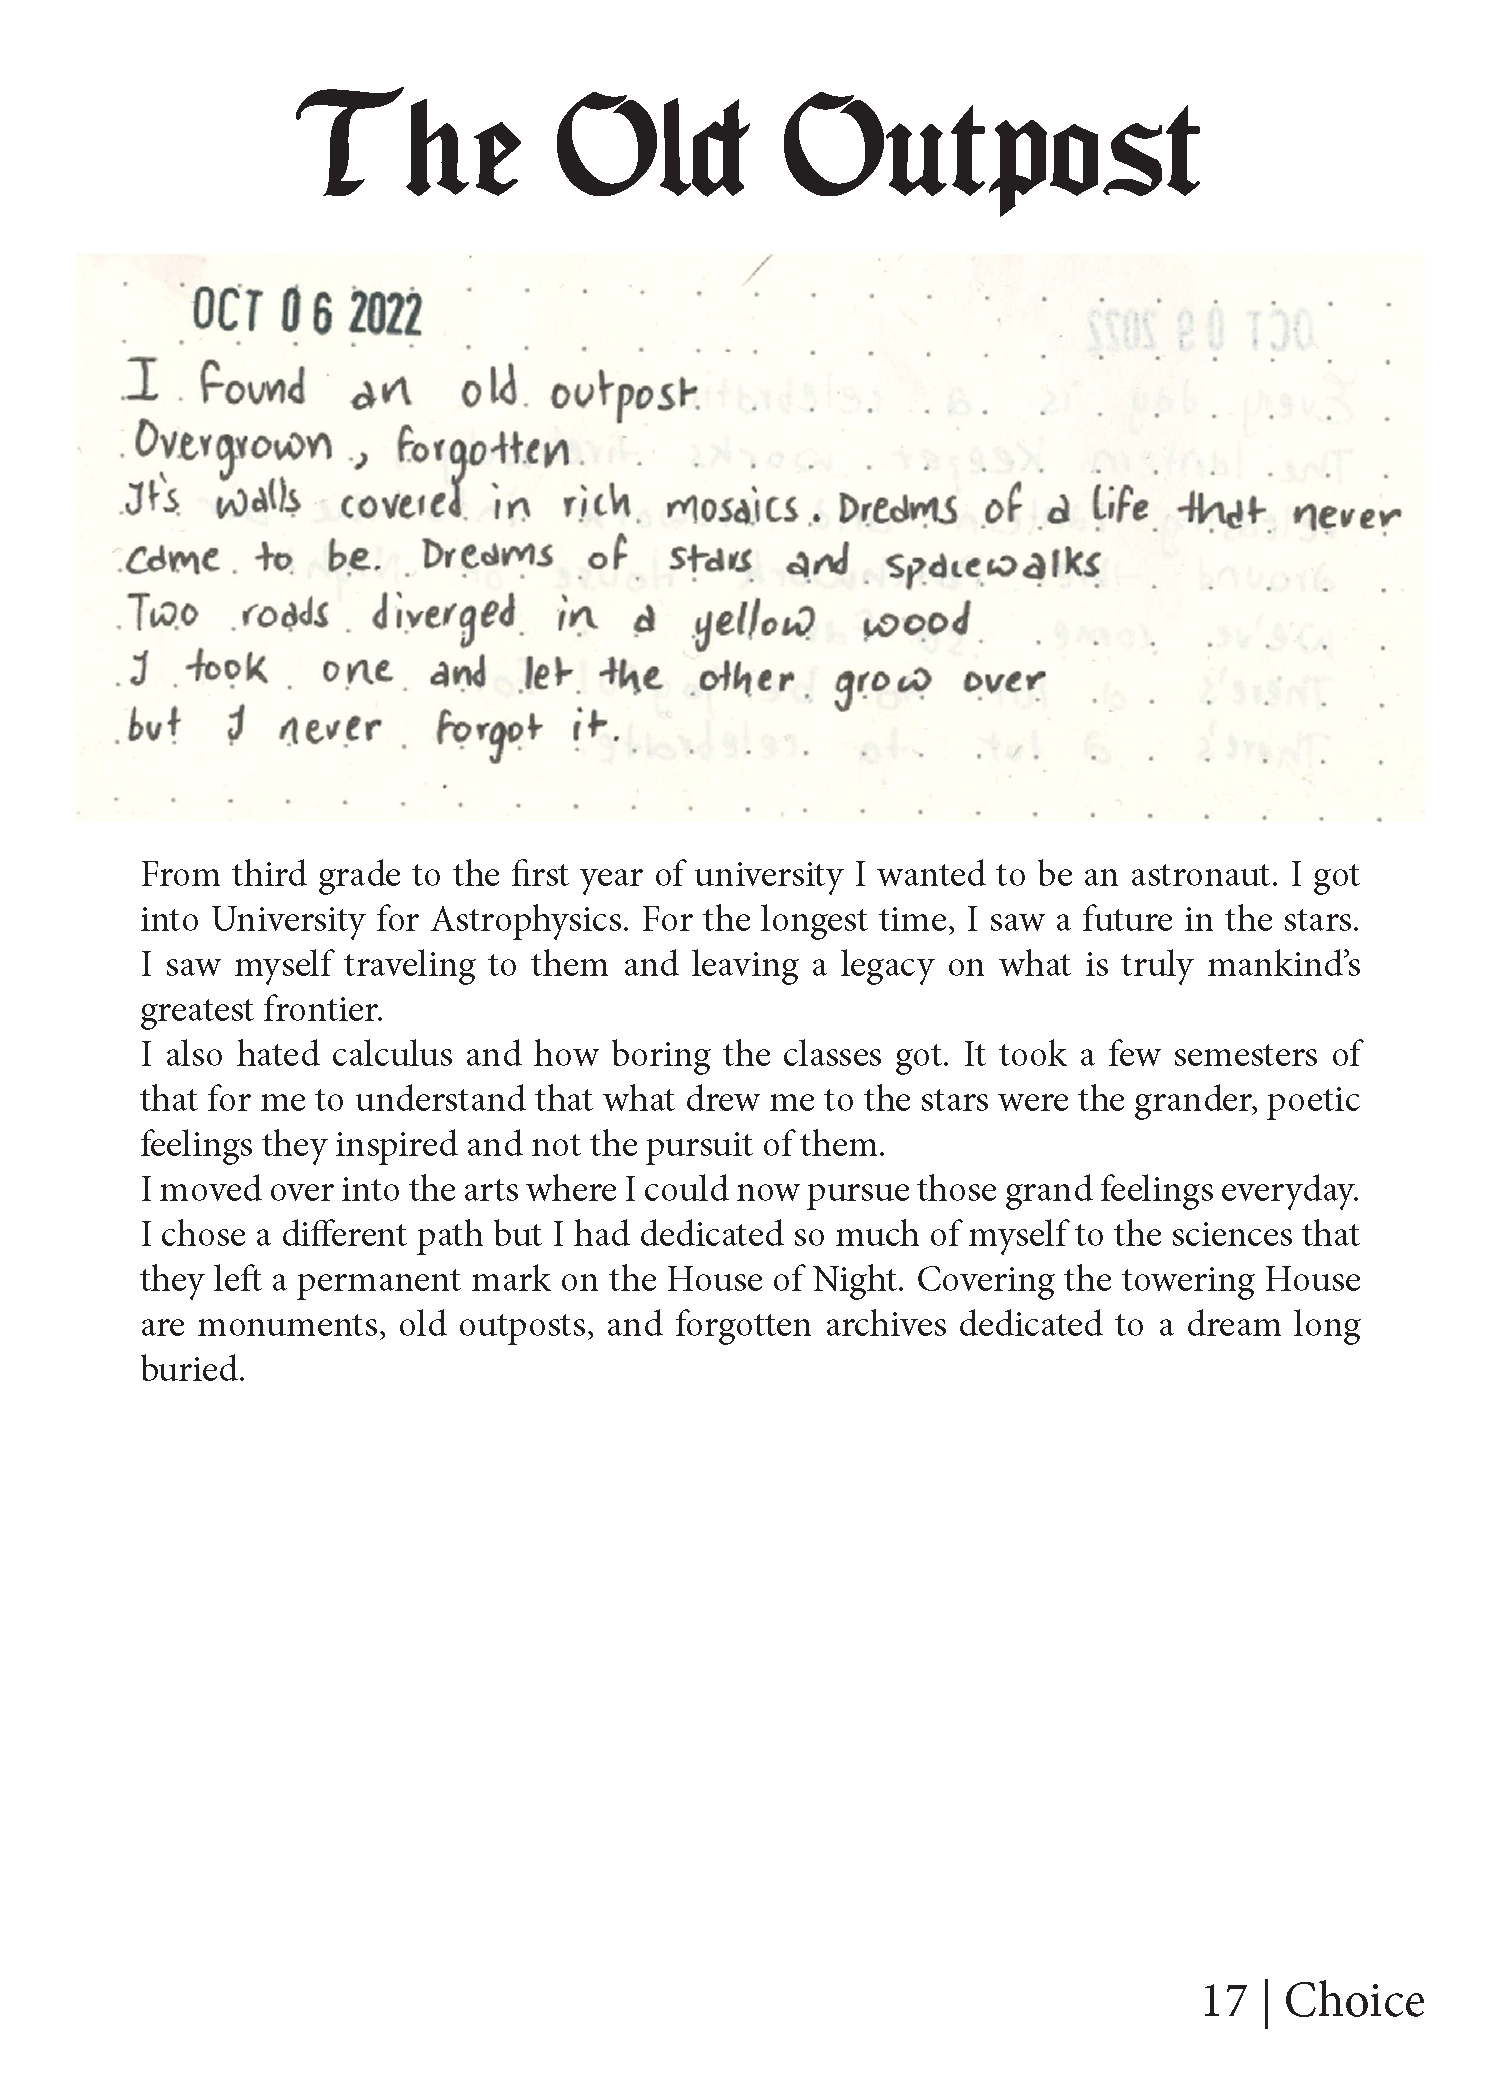 The Old Outpost
OCT 06 2022
I found an old outpost.
Overgrown, forgotten.
It's walls covered in rich mosaics. Dreams of a life that never
came to be. Dreams of stars and spacewalks
Two roads diverged in a yellow wood
I took one and let the other grow over
but I never forgot it.
From third grade to the first year of university I wanted to be an astronaut. I got
into University for Astrophysics. For the longest time, I saw a future in the stars.
I saw myself traveling to them and leaving a legacy on what is truly mankind’s
greatest frontier.
I also hated calculus and how boring the classes got. It took a few semesters of
that for me to understand that what drew me to the stars were the grander, poetic
feelings they inspired and not the pursuit of them.
I moved over into the arts where I could now pursue those grand feelings everyday.
I chose a different path but I had dedicated so much of myself to the sciences that
they left a permanent mark on the House of Night. Covering the towering House
are monuments, old outposts, and forgotten archives dedicated to a dream long
buried.
17 | Choice